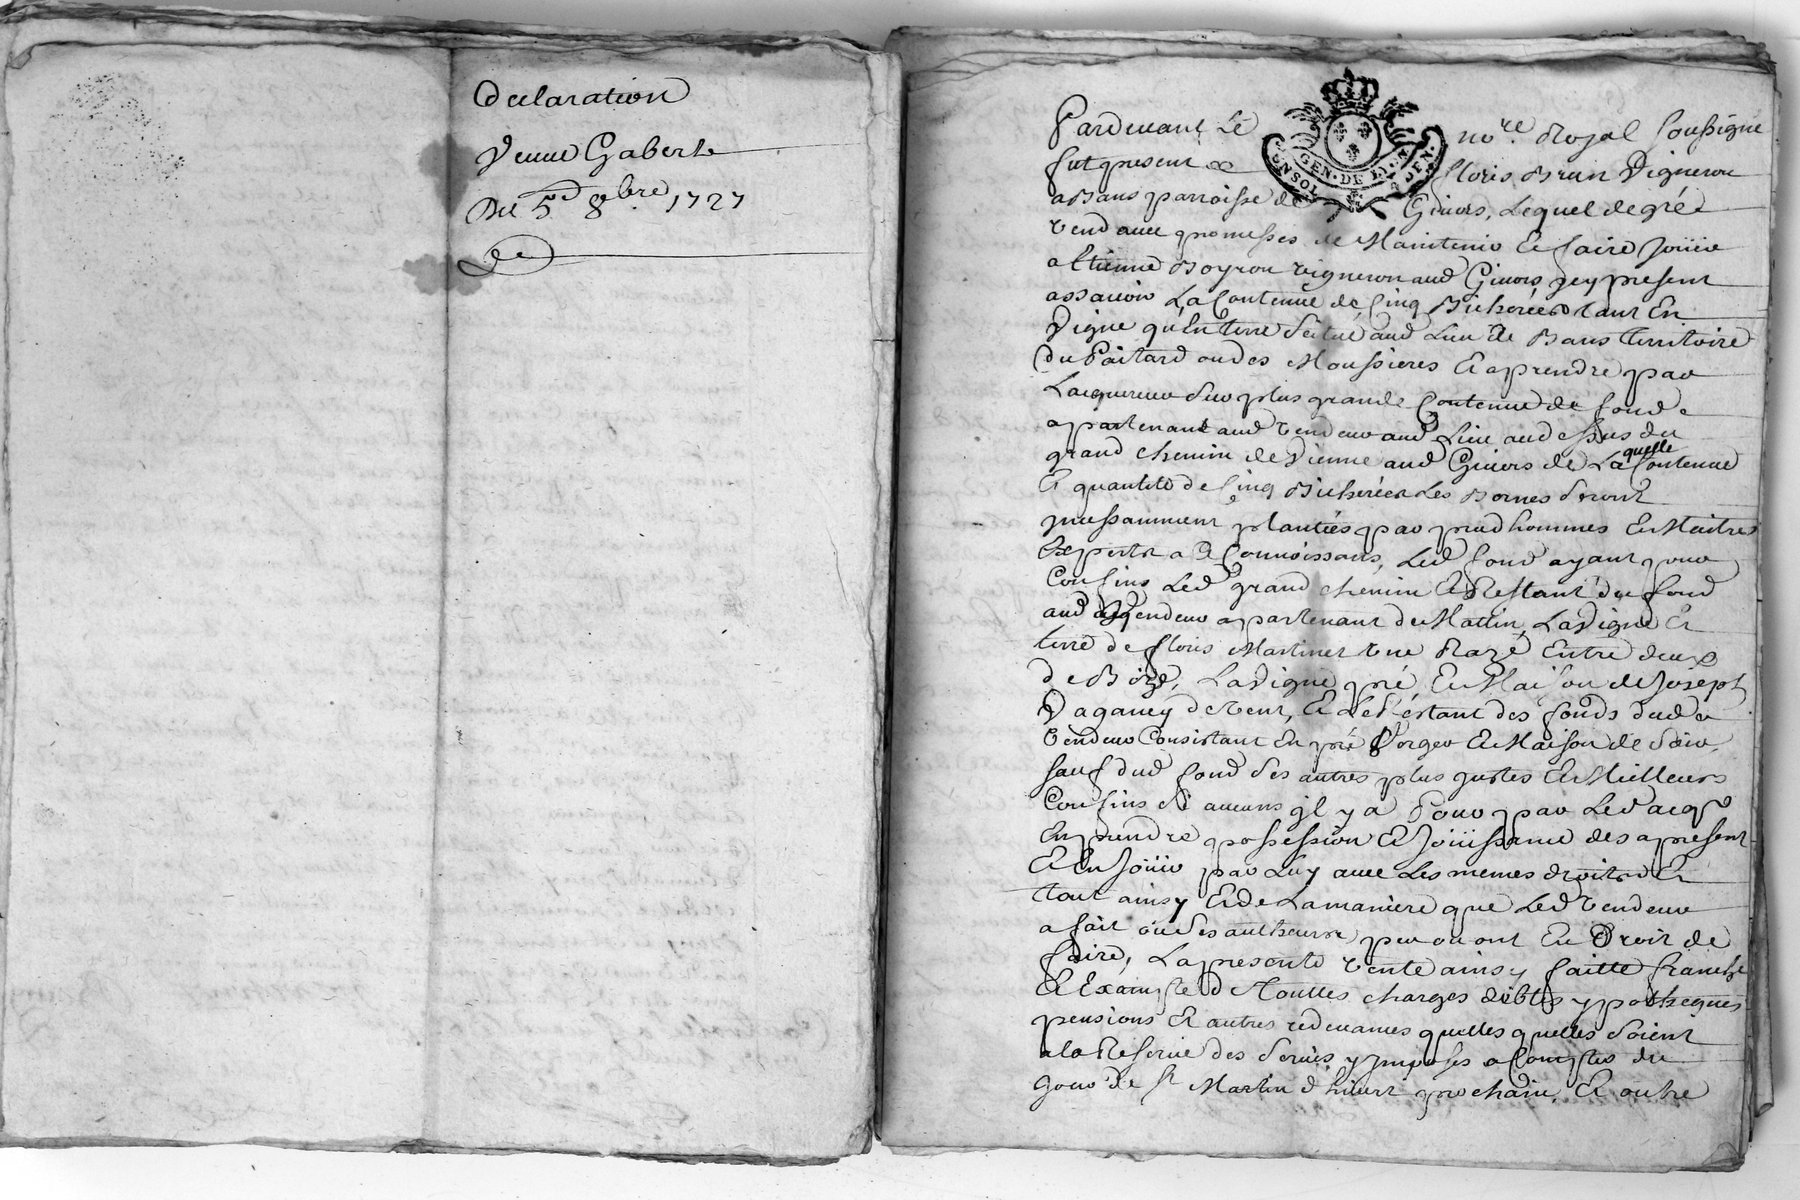 Declaration
Veuve Gabert
Du 5e 8bre 1727
De
Pardevant Le no.re Royal soussigné
GEN. DE LYON
fut present floris Brun Vigneron
a Bans parroisse de Givors, Lequel de gré
vend avec promesses de Maintenir Et faire Joüir
a Etienne Boyron vigneron aud Givors jcy present
assavoir La Contenue de Cinq Bicherées tant En
Vigne qu'En terre Scitué aud Lieu de Bans territoire
du Paitard ou des Moussieres Et a prendre par
Lacquereur Sur plus grande Contenue de fond
apartenant aud vendeur aud Lieu au dessus du
grand chemin de Vienne aud Givors de Laquelle Contenue
Et quantité de Cinq Bicherées Les Bornes Seront
jncessamment plantées par prudhommes Et Maitres
Experts a Ce Connoissans, Led fond ayant pour
Confins Led grand chemin Et Restant du fond
aud vendeur apartenant de Matin, La Vigne Et
terre de floris Martinet une Raze Entre deux
de Bize, La Vigne, pré, Et Maison de Joseph
Vaganey de vent, Et Le Restant des fonds dud
vendeur Consistant En pré Verger Et Maison de Soir,
sauf dud fond Ses autres plus justes Et Meilleurs
Confins Si aucuns jl y a Pour par Led acqr
En prendre possession Et Joüissance des a present
Et En Joüir par Luy avec Les memes droits Et
tout ainsy Et de La maniere que Led vendeur
a fait ou Ses autheurs peu ou ont Eu Droit de
faire, La presente vente ainsy faitte franche
Et Exempte de Touttes charges debtes ypotheques
pensions Et autres redevances quelles quelles Soient
a la Reserve des Servis y jmposés a Comptes du
jour de St Martin d'hiver prochain, Et outre